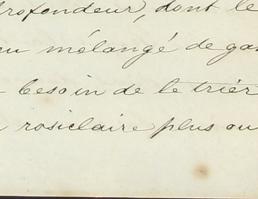 profondeur, dont le
mélangé de
besoin de le trier
rosiclaire plus ou